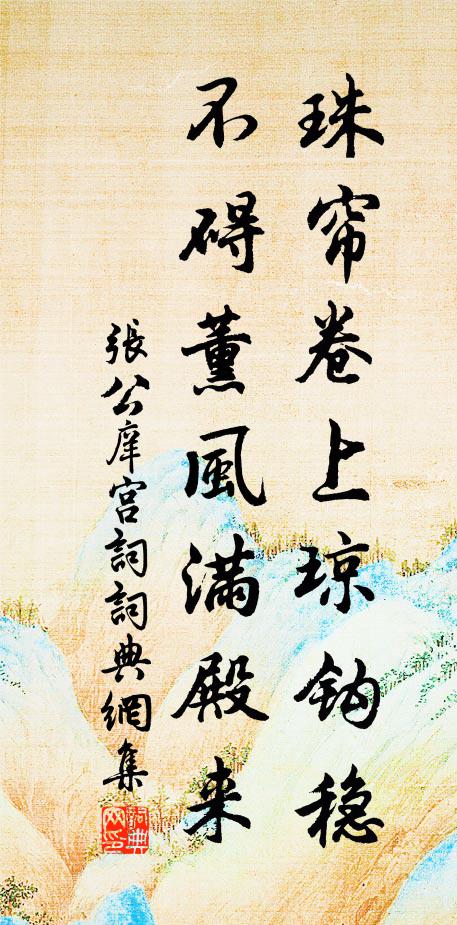 珠帘卷上琼钩稳
不碍薰風満殿来
張公庠宫詞詞典網集
詞典网印